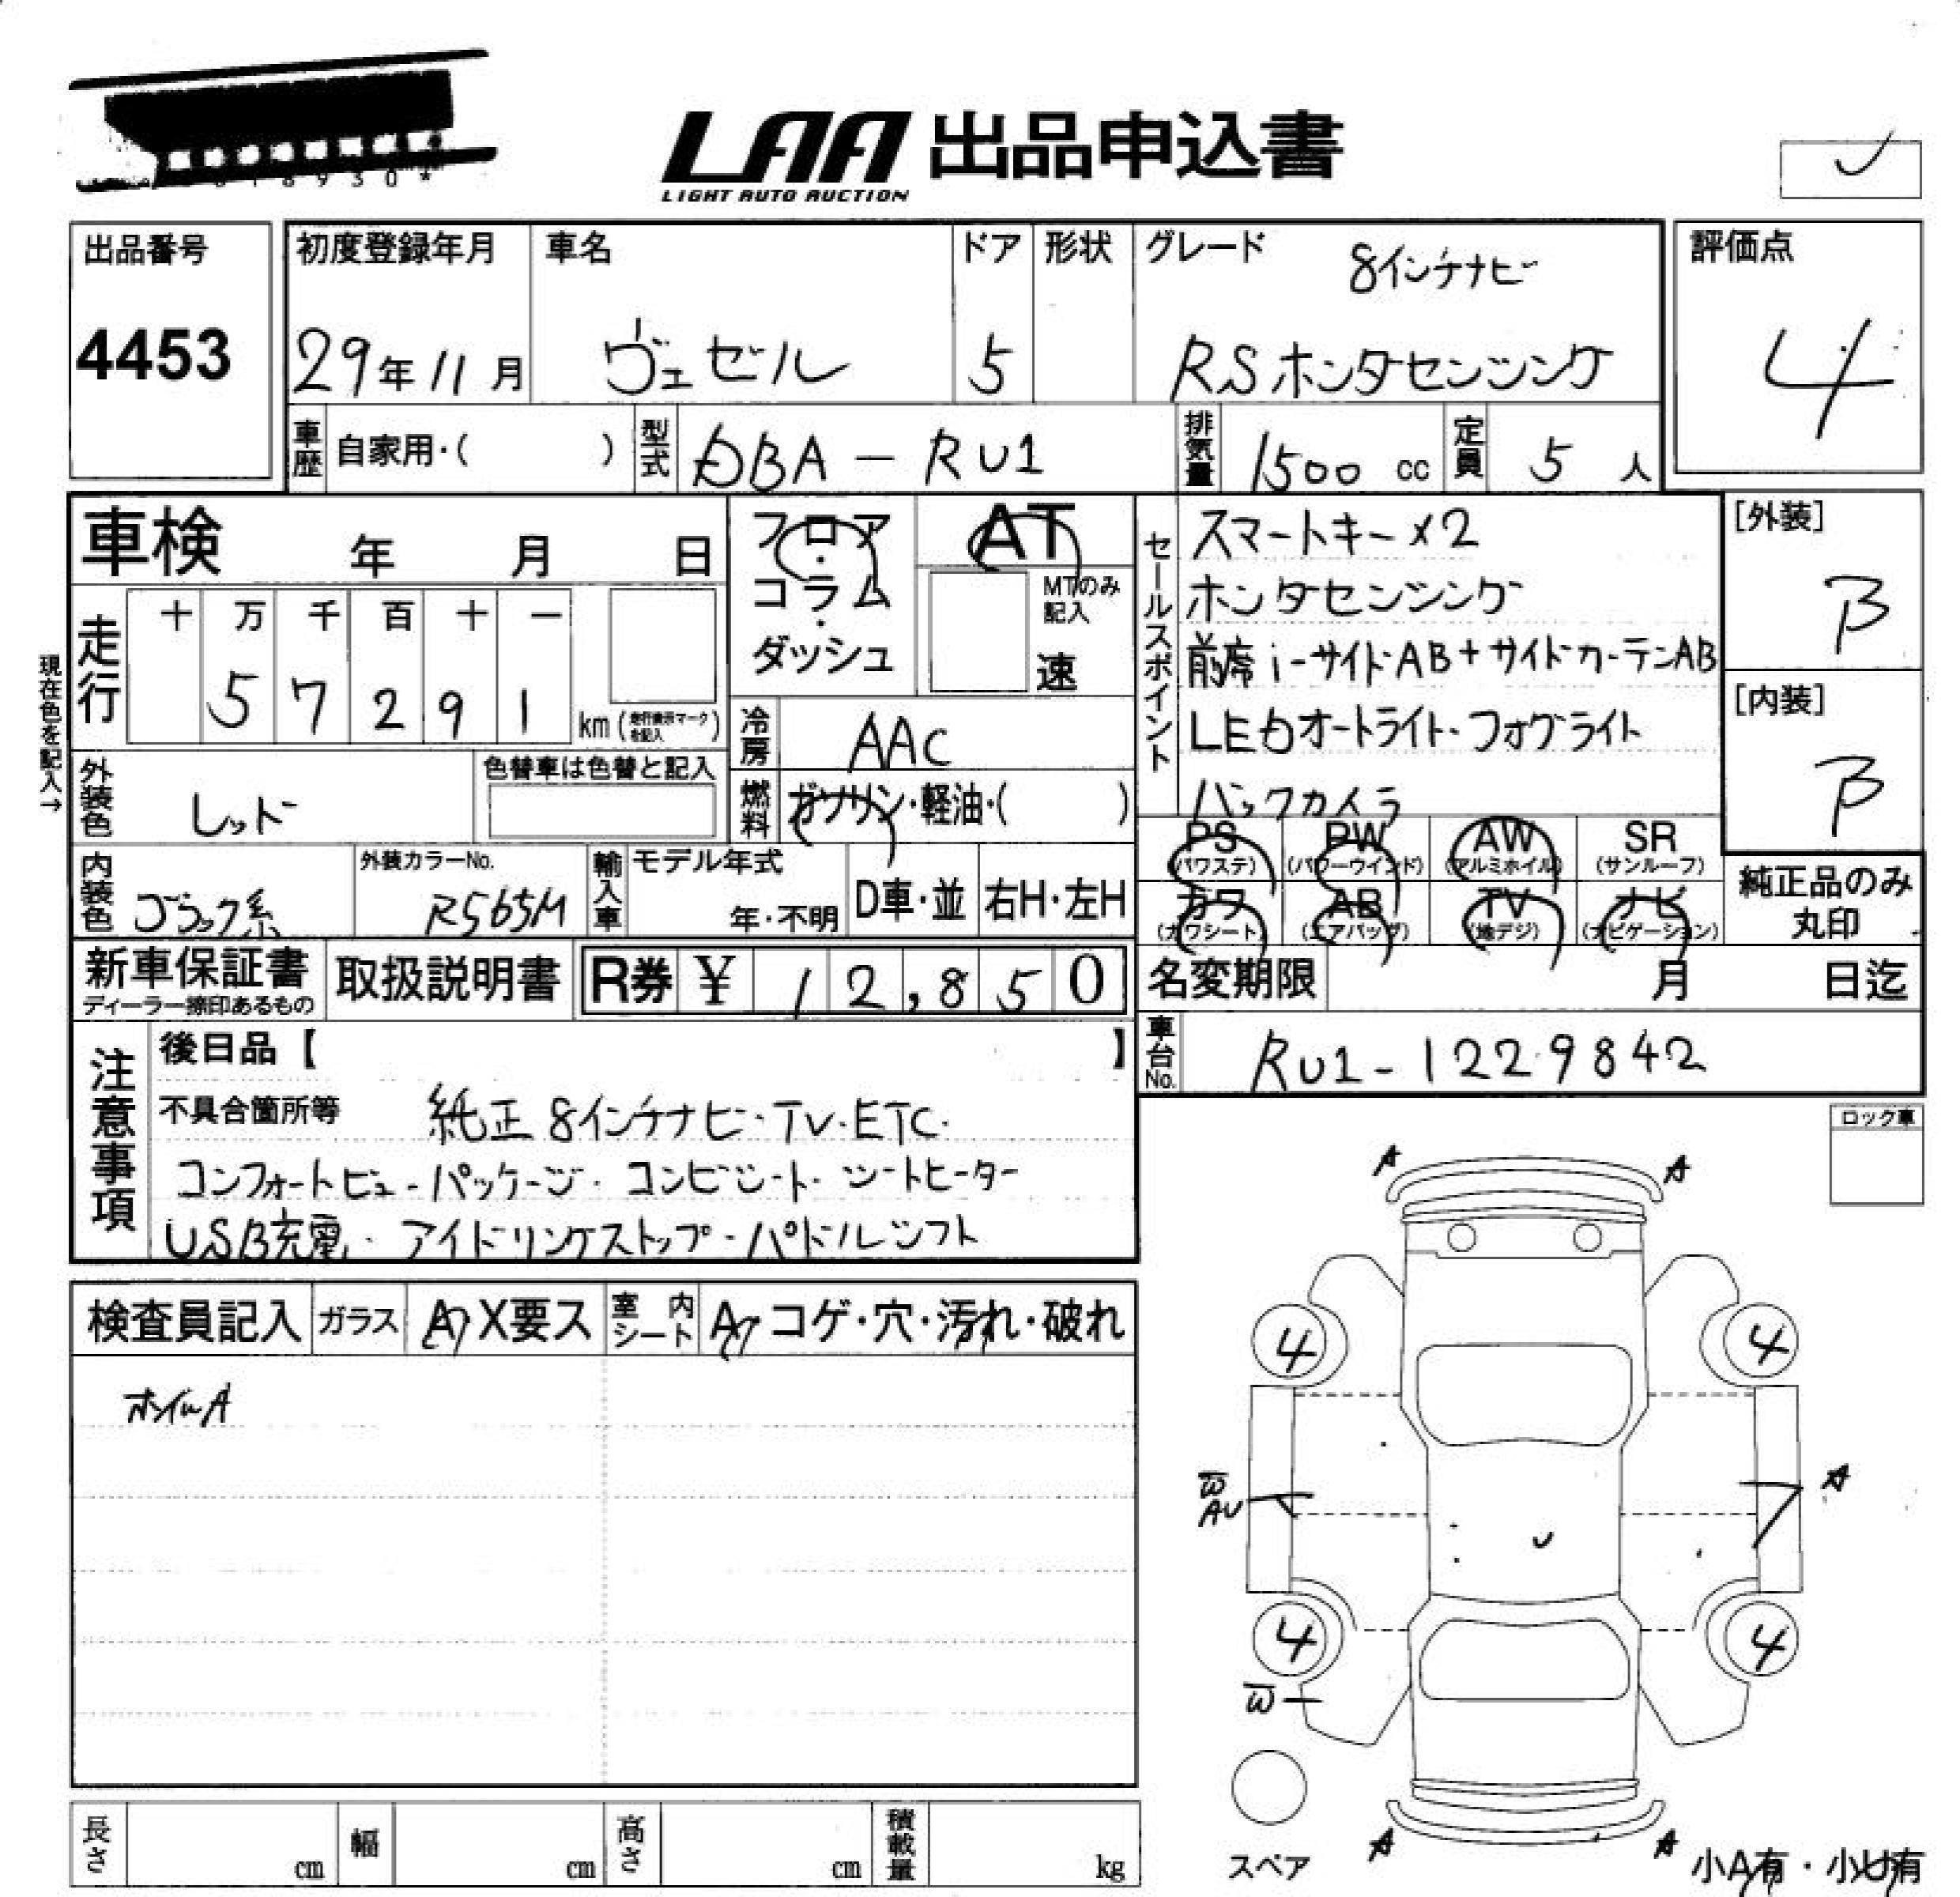 8930*
LAA 出品申込書
LIGHT AUTO AUCTION
出品番号
4453
初度登録年月
29年11月
車名
ヴェゼル
ドア
5
形状
グレード
8インチナビ
RSホンダセンシング
評価点
4
車歴 自家用・( )
型式 DBA-RU1
排気量 1500 cc
定員 5 人
車検 年 月 日
フロア・コラム・ダッシュ
AT
MTのみ記入
速
走行
十 万 千 百 十 一
5 7 2 9 1
km (走行表示マークを記入)
現在色を記入→
冷房 AAC
外装色 レッド
色替車は色替と記入
燃料 ガソリン・軽油・( )
内装色 ブラック系
外装カラーNo.
R565M
輸入車 モデル年式
年・不明
D車・並
右H・左H
セールスポイント
スマートキー×2
ホンダセンシング
前席i-サイドAB+サイドカーテンAB
LEDオートライト・フォグライト
バックカメラ
[外装]
B
[内装]
B
PS (パワステ)
PW (パワーウインド)
AW (アルミホイル)
SR (サンルーフ)
カワ (カワシート)
AB (エアバッグ)
TV (地デジ)
ナビ (ナビゲーション)
純正品のみ丸印
新車保証書
ディーラー捺印あるもの
取扱説明書
R券 ¥ 12,850
名変期限 月 日迄
車台No. RU1-1229842
注意事項
後日品【 】
不具合箇所等 純正8インチナビ・TV・ETC・
コンフォートビューパッケージ・コンビシート・シートヒーター
USB充電・アイドリングストップ・パドルシフト
ロック車
検査員記入
ガラス A X要ス
室内シート A コゲ・穴・汚れ・破れ
ホイルA
A A
4 4
W
AU
A
U
4 4
W
A A
スペア
小A有・小U有
長さ cm
幅 cm
高さ cm
積載量 kg